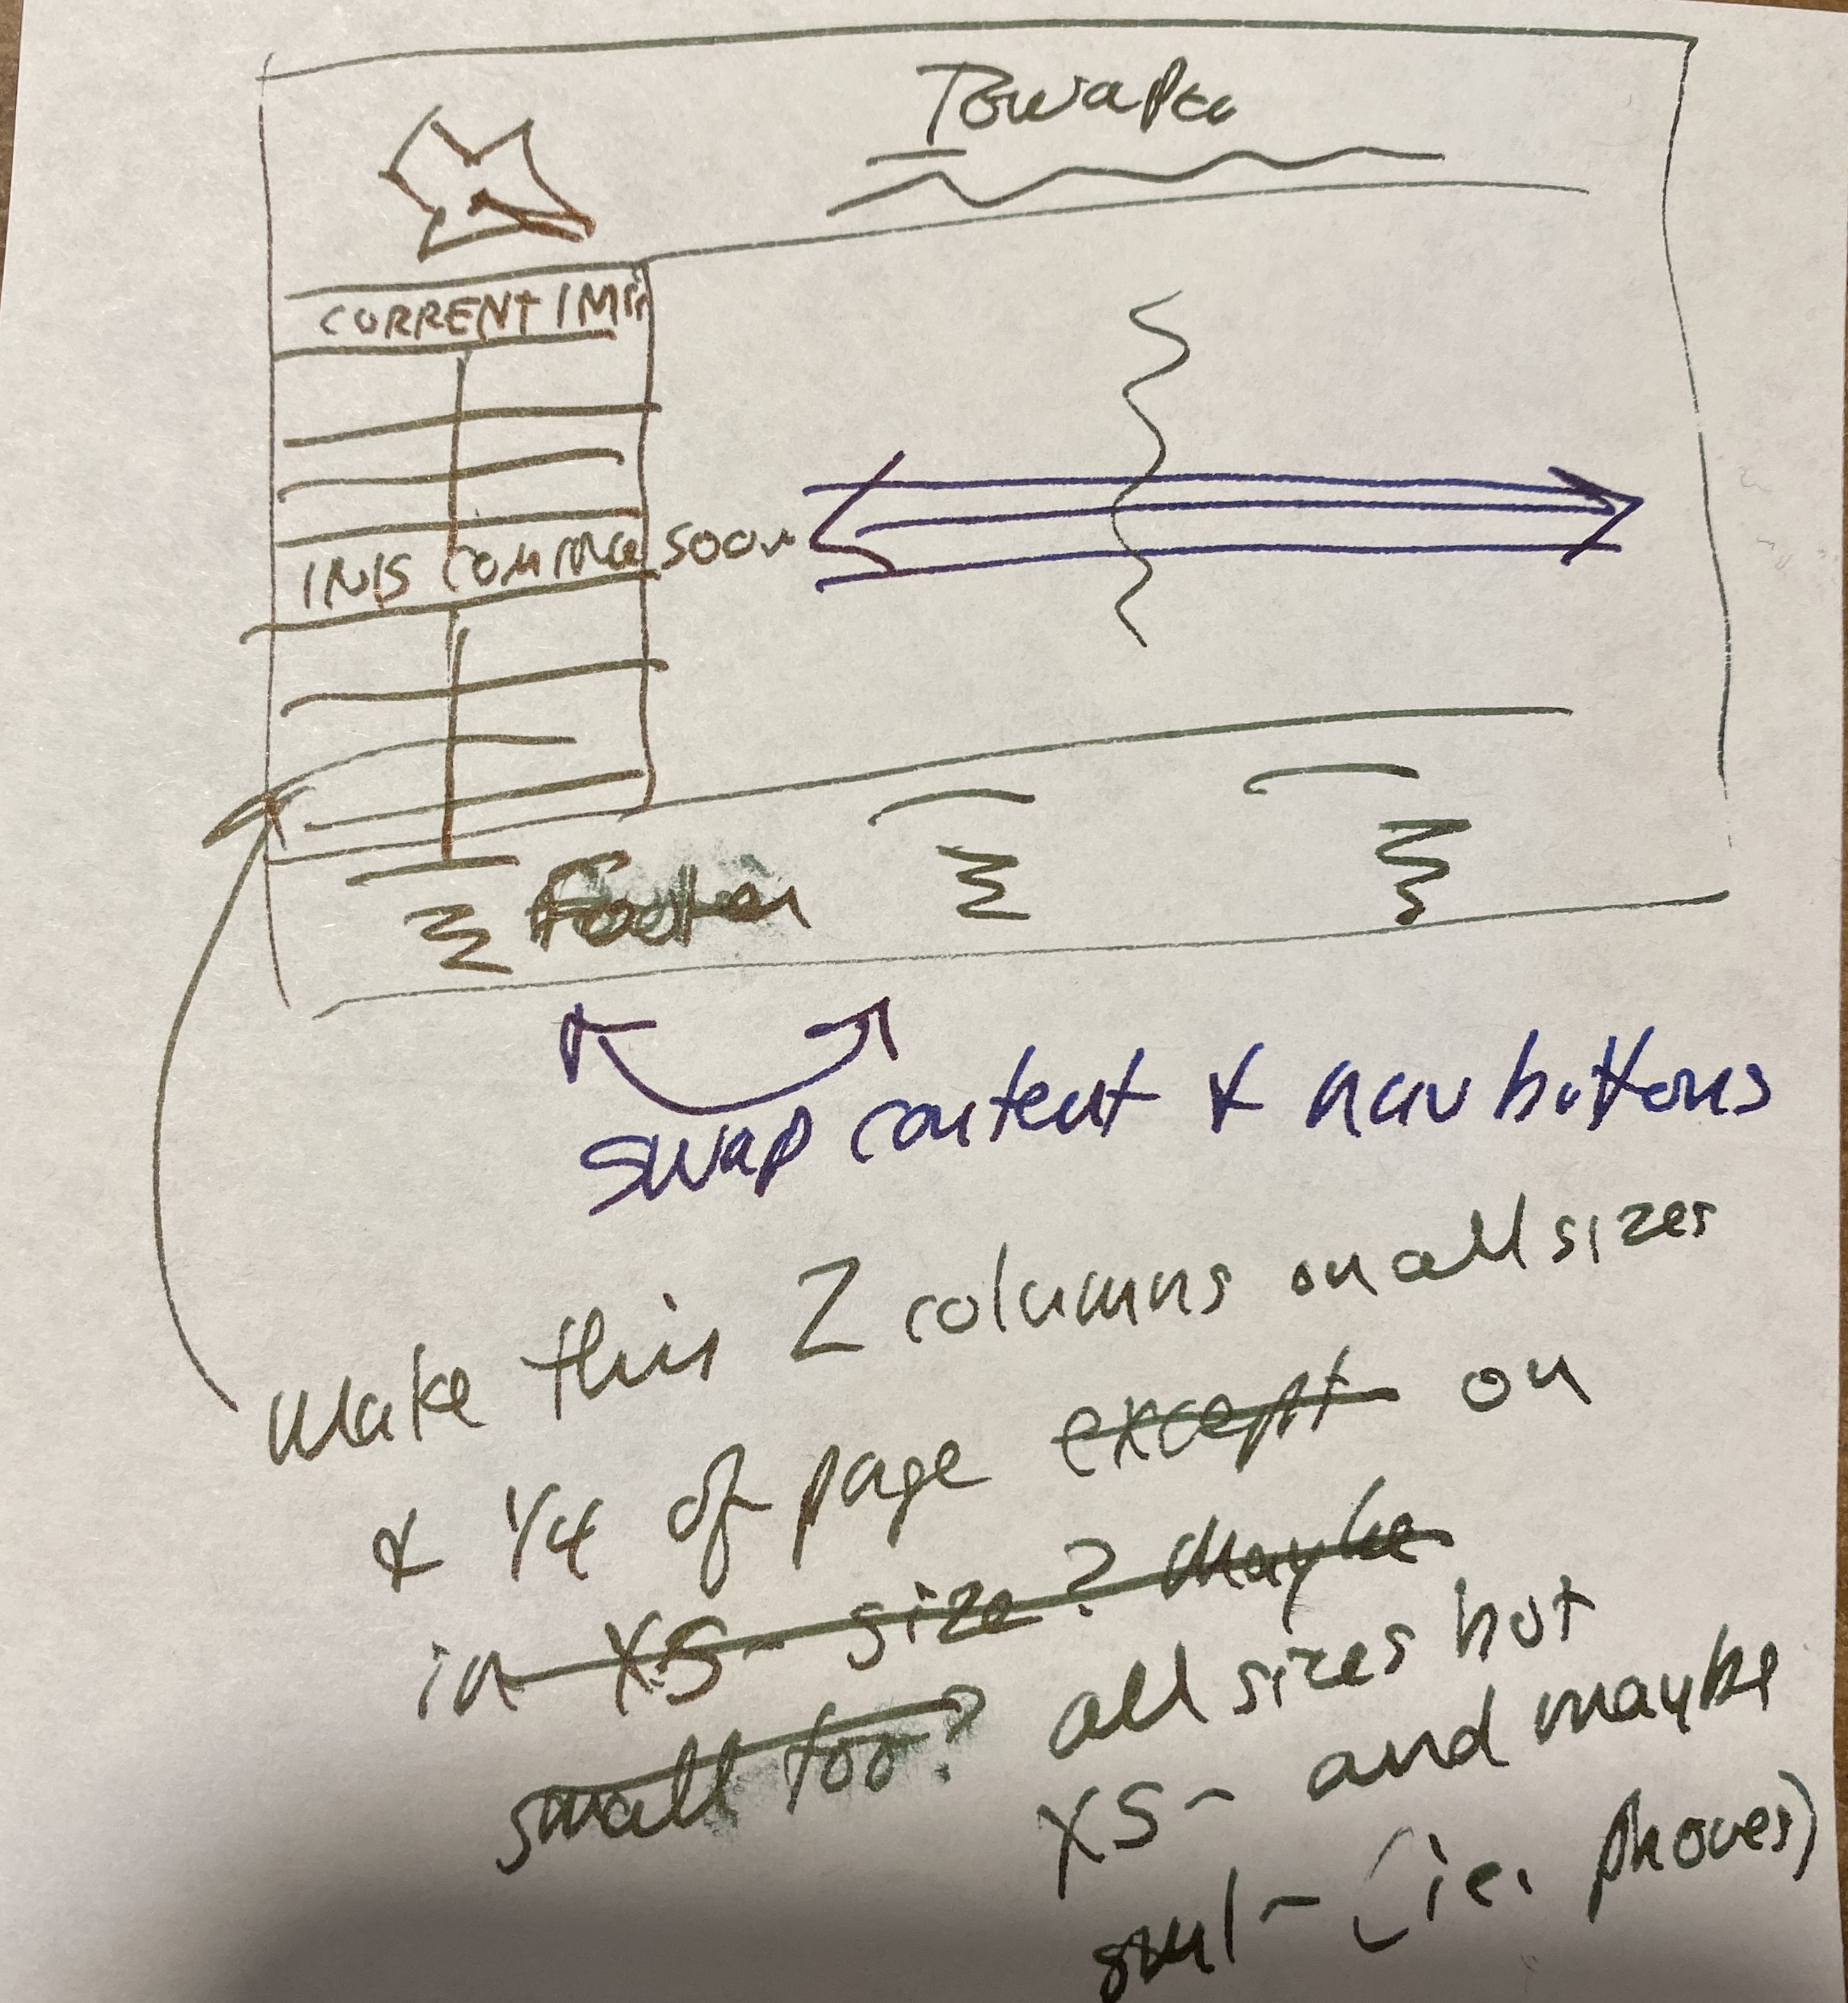 CURRENT
INIS COMING SOON
Footer
swap content & nav buttons
Make this 2 columns on all sizes
& 1/4 of page except on
in XS- size? Maybe
small too? all sizes but
XS- and maybe
sml- (ie. phones)